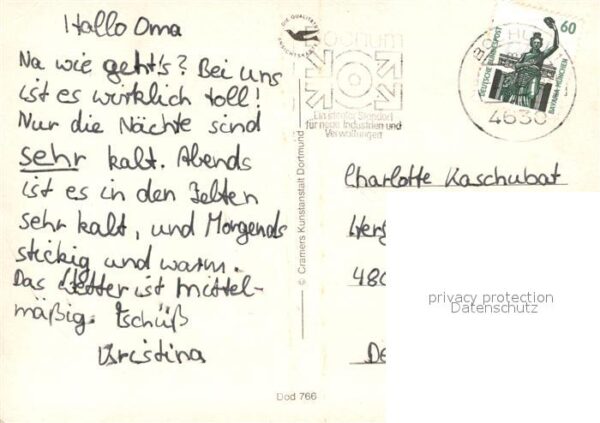 Hallo Oma
Na wie geht's? Bei uns
ist es wirklich toll!
Nur die Nächte sind
sehr kalt. Abends
ist es in den Zelten
sehr kalt, und Morgends
stickig und warm.
Das Wetter ist mittel-
mäßig. Tschüß
Kristina
DIE QUALITÄTS
ANSICHTSKARTE
Bochum
Ein starker Standort
für neue Industrien und
Verwaltungen
© Cramers Kunstanstalt Dortmund
Dod 766
BOCHUM
4630
60
DEUTSCHE BUNDESPOST
BAVARIA MÜNCHEN
Charlotte Kaschubat
Her
480
De
privacy protection
Datenschutz